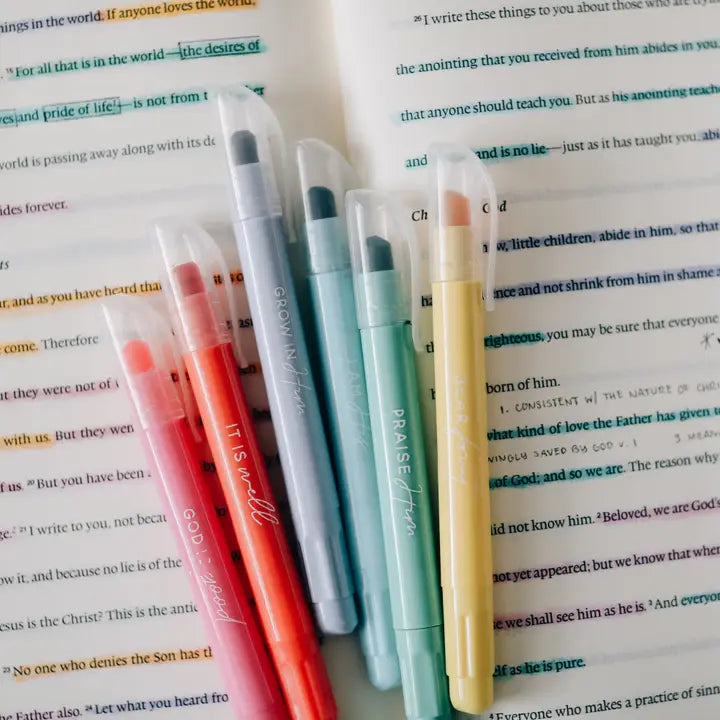 ings in the world. If anyone loves the world,
15 For all that is in the world—the desires of
es and pride of life—is not from t
world is passing away along with its de
ides forever.
ts
ur, and as you have heard tha
come. Therefore
at they were not of
with us. But they were
f us. 20 But you have been
ge. 21 I write to you, not becau
ow it, and because no lie is of the
esus is the Christ? This is the antic
23 No one who denies the Son has th
he Father also. 24 Let what you heard fro
GOD is good
IT IS well
GROW IN Him
I AM His
PRAISE Him
26 I write these things to you about those who are tryin
the anointing that you received from him abides in you
that anyone should teach you. But as his anointing teache
and is no lie—just as it has taught you, abi
Ch God
w, little children, abide in him, so that
ence and not shrink from him in shame a
righteous, you may be sure that everyone
born of him.
1. CONSISTENT W/ THE NATURE OF CHR
what kind of love the Father has given to
INGLY SAVED BY GOD V. 1 3 MEAN
of God; and so we are. The reason why
did not know him. 2 Beloved, we are God's
not yet appeared; but we know that when
e we shall see him as he is. 3 And everyone
lf as he is pure.
4 Everyone who makes a practice of sinn